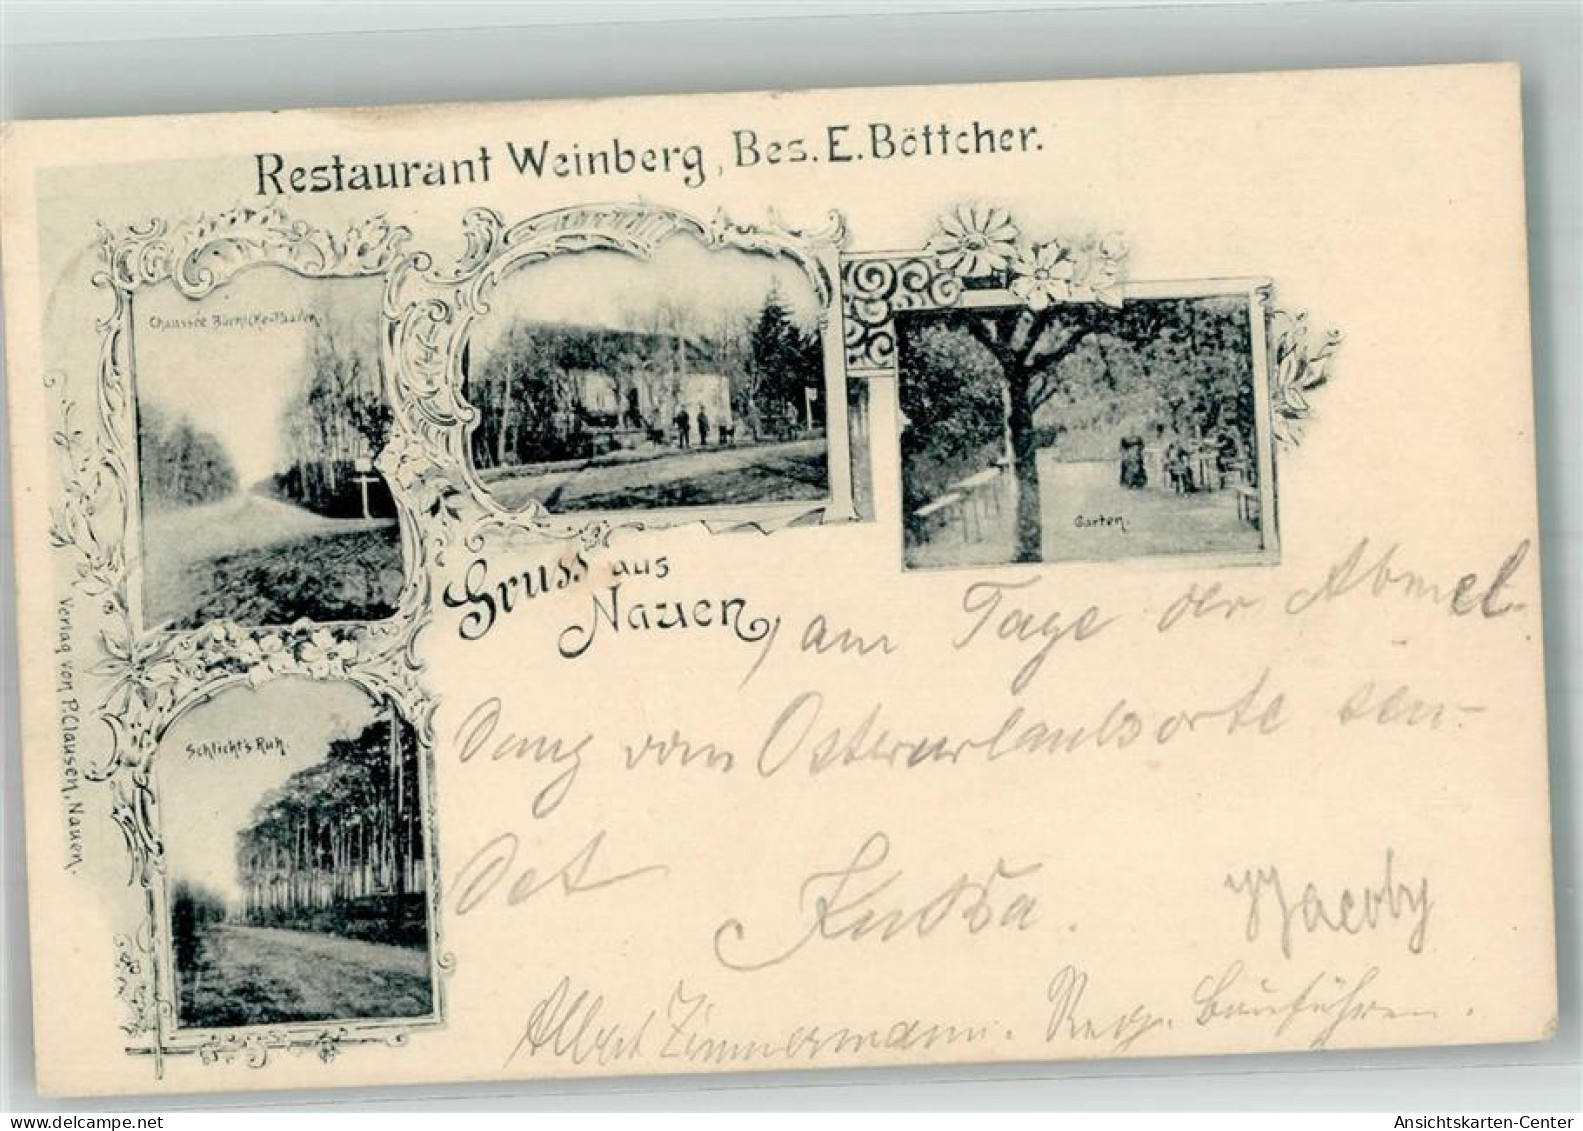 Restaurant Weinberg, Bes. E. Böttcher.
Chaussée
Garten.
Gruss aus
Nauen
Schlicht's Ruh.
Verlag von P. Clausen, Nauen.
am Tage der Abmel-
dung vom Osterurlaubsorte sen-
det
Jacoby
Albert Zimmermann. Reg. Bauführer.
Ansichtskarten-Center